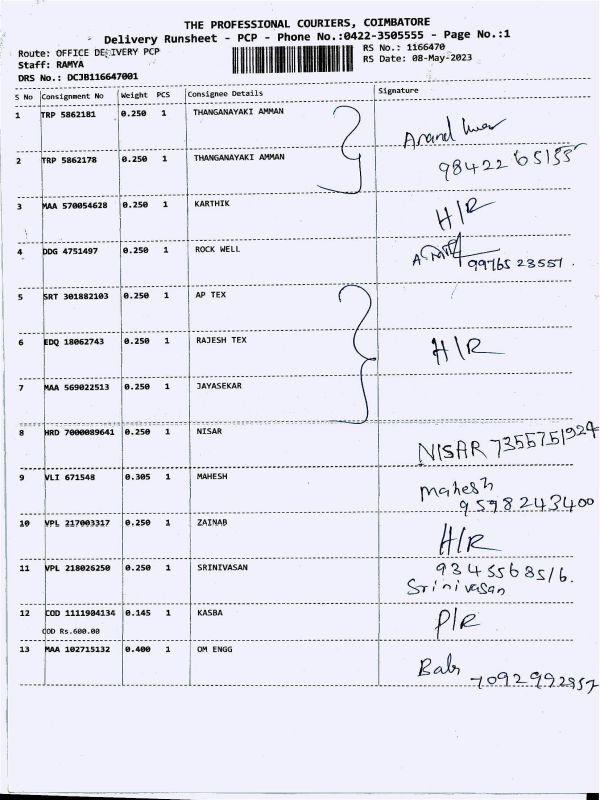 THE PROFESSIONAL COURIERS, COIMBATORE
Delivery Runsheet - PCP - Phone No.:0422-3505555 - Page No.:1
Route: OFFICE DELIVERY PCP
RS No.: 1166470
Staff: RAMYA
RS Date: 08-May-2023
DRS No.: DCJB116647001
S No Consignment No Weight PCS Consignee Details Signature
1 TRP 5862181 0.250 1 THANGANAYAKI AMMAN
Anand
2 TRP 5862178 0.250 1 THANGANAYAKI AMMAN
98422 65155
3 MAA 570054628 0.250 1 KARTHIK H/R
4 DDG 4751497 0.250 1 ROCK WELL
99765 23557.
5 SRT 301882103 0.250 1 AP TEX
6 EDQ 18062743 0.250 1 RAJESH TEX H/R
7 MAA 569022513 0.250 1 JAYASEKAR
8 HRD 7000089641 0.250 1 NISAR NISAR 7355751924
9 VLI 671548 0.305 1 MAHESH Mahesh
9598243400
10 VPL 217003317 0.250 1 ZAINAB H/R
11 VPL 218026250 0.250 1 SRINIVASAN 9345568516.
Srinivasan
12 COD 1111904134 0.145 1 KASBA P/R
COD Rs.600.00
13 MAA 102715132 0.400 1 OM ENGG Babu
7092992857